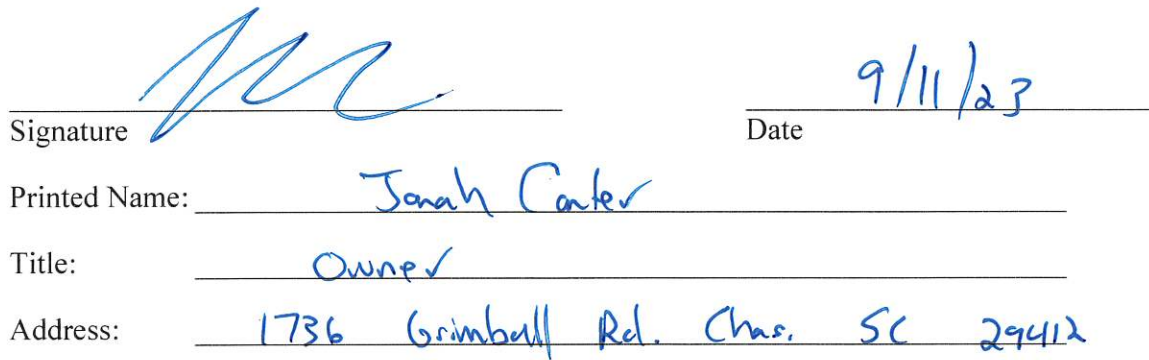 9/11/23
Signature Date
Printed Name: Jonah Carter
Title: Owner
Address: 1736 Grimball Rd. Chas. SC 29412